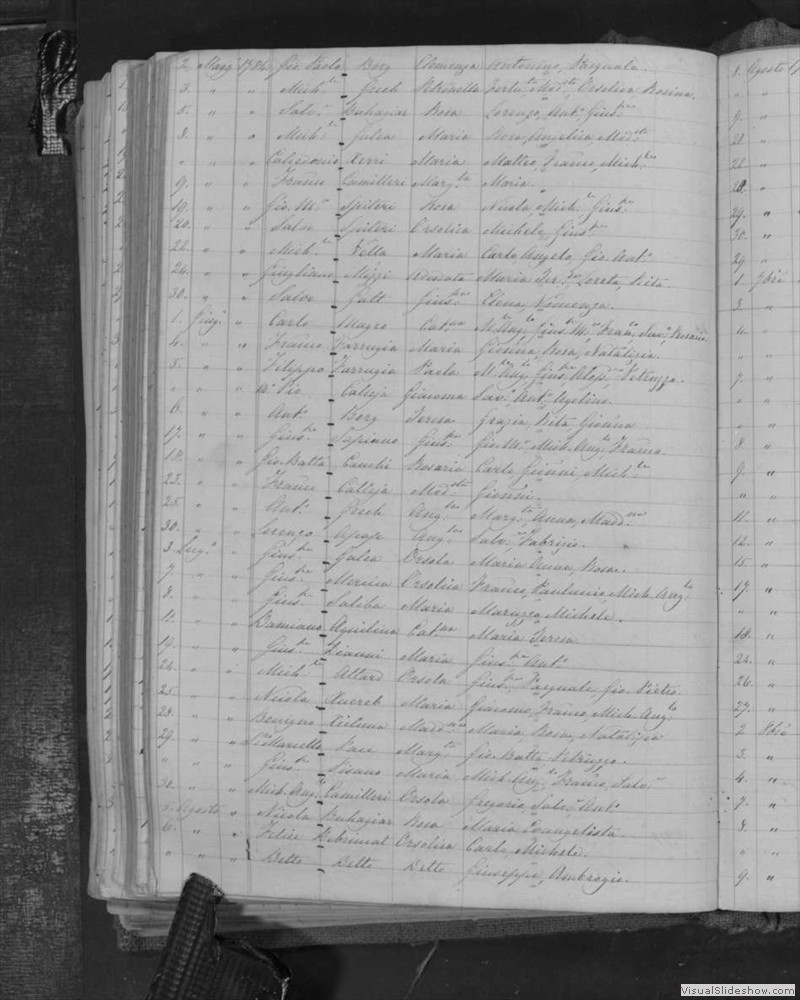 2 Magg. 1784 Gio. Paolo Borg Clemenza Antonino, Pasquale.
3. " " Mich.le Grech Petronella Mod.sta Orsolica Rosina.
5. " " Salv.e Buhagiar Rosa Lorenzo, Ant.o Gius.pe
8. " " Mich.le Galea Maria Rosa, Angelica, Mod.sta
" " " Calcedonio Xerri Maria Matteo, Franco, Mich.le
9. " " Franco Camilleri Marg.ta Maria.
19. " " Gio. M.a Spiteri Rosa Nicola, Mich.le Gius.pe
20. " " Salv. Spiteri Orsolica Michele, Gius.pe
22. " " Mich.le Vella Maria Carlo, Angelo, Gio. Ant.o
24. " " Giugliano Mizzi Maria Loreta, Rita.
30. " " Salvo Galt Gius.pa Elena, Vincenza.
1. Giug.o " Carlo Magro Cat.na Rosario
4. " " Franco Farrugia Maria Gio'nna, Rosa, Natalizia.
5. " " Filippo Farrugia Paola M. Ang. Gius. Petruzza.
" " " Pio Calleja Giacoma Sav. Ant. Agelino.
6. " " Ant.o Borg Teresa Grazia, Rita, Gio'nna
17. " " Gius.pe Tapiano Gius.pa Gio. M.a Mich. Ang.lo Franco.
18. " " Gio. Batta Cauchi Rosaria Carlo Gio'nni, Mich.le
23. " " Franco Calleja Mod.sta Gio'nni.
25. " " Ant.o Grech Ang.la Marg.ta Anna, Madd.na
30. " " Lorenzo Apap Ang.la Salv.e Fabrizio.
3. Lug.o " Gius.pe Galea Orsola Maria Anna, Rosa.
7. " " Gius.pe Mercieca Orsolica Franco, Paulinio, Mich. Ang.lo
8. " " Gius.pe Saliba Maria Maruzza, Michele.
11. " " Damiano Aquilina Cat.na Maria Teresa
19. " " Gius.pe Zianni Maria Gius.pe Ant.o
24. " " Mich.le Attard Orsola Gius.pe Pasquale, Gio. Pietro.
25. " " Nicola Xuereb Maria Giacomo, Franco, Mich. Ang.lo
28. " " Benigno Xicluna Madd.na Maria, Rosa, Natalizia
29. " " Marcello Pace Marg.ta Gio. Batta Petruzzo.
" " " Gius.pe Pisano Maria Mich. Ang.lo Franco, Salv.e
30. " " Mich. Ang.lo Camilleri Orsola Gregorio, Salv.e Ant.o
5. Agosto " Nicola Buhagiar Rosa Maria Evangelista.
6. " " Felice Debrincat Orsolica Carlo, Michele.
" " " Detto Detto Detto Giuseppe, Ambrogio.
1. Agosto
"
9. "
21 "
22. "
28. "
29. "
30. "
29 "
1. 7bre
3. "
4. "
" "
7. "
" "
" "
8. "
9. "
" "
11. "
12. "
15 "
17. "
" "
18. "
24. "
26. "
27. "
2 8bre
3. "
4. "
7. "
8. "
" "
9. "
VisualSlideshow.com